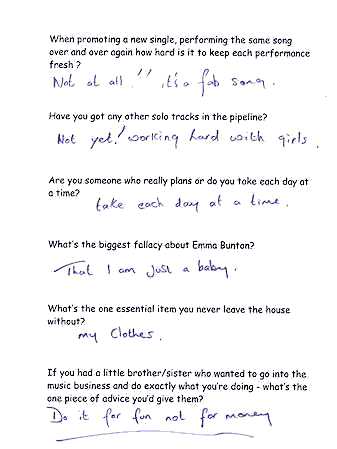 When promoting a new single, performing the same song
over and over again how hard is it to keep each performance
fresh ?
Not at all !! it's a fab song.
Have you got any other solo tracks in the pipeline?
Not yet! working hard with girls.
Are you someone who really plans or do you take each day at
a time?
take each day at a time.
What's the biggest fallacy about Emma Bunton?
That I am just a baby.
What's the one essential item you never leave the house
without?
my Clothes.
If you had a little brother/sister who wanted to go into the
music business and do exactly what you're doing - what's the
one piece of advice you'd give them?
Do it for fun not for money